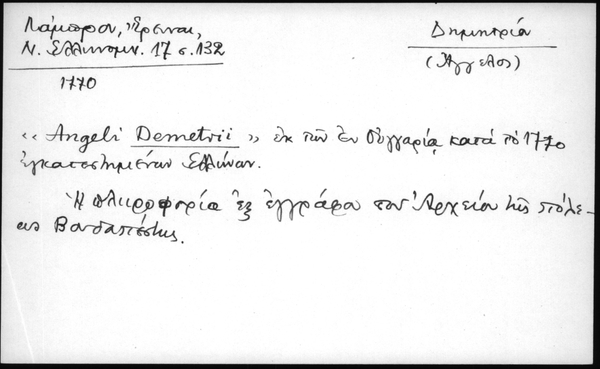 Λάμπρου, Ἔρευναι,
Ν. Ἑλληνομν. 17 σ. 132
1770
Δημητρία
(Ἄγγελος)
«Angeli Demetrii» ἐκ τῶν ἐν Οὑγγαρίᾳ κατά τὸ 1770
ἐγκατεστημένων Ἑλλήνων.
Ἡ πληροφορία ἐξ ἐγγράφου τοῦ Ἀρχείου τῆς πόλε-
ως Βουδαπέστης.